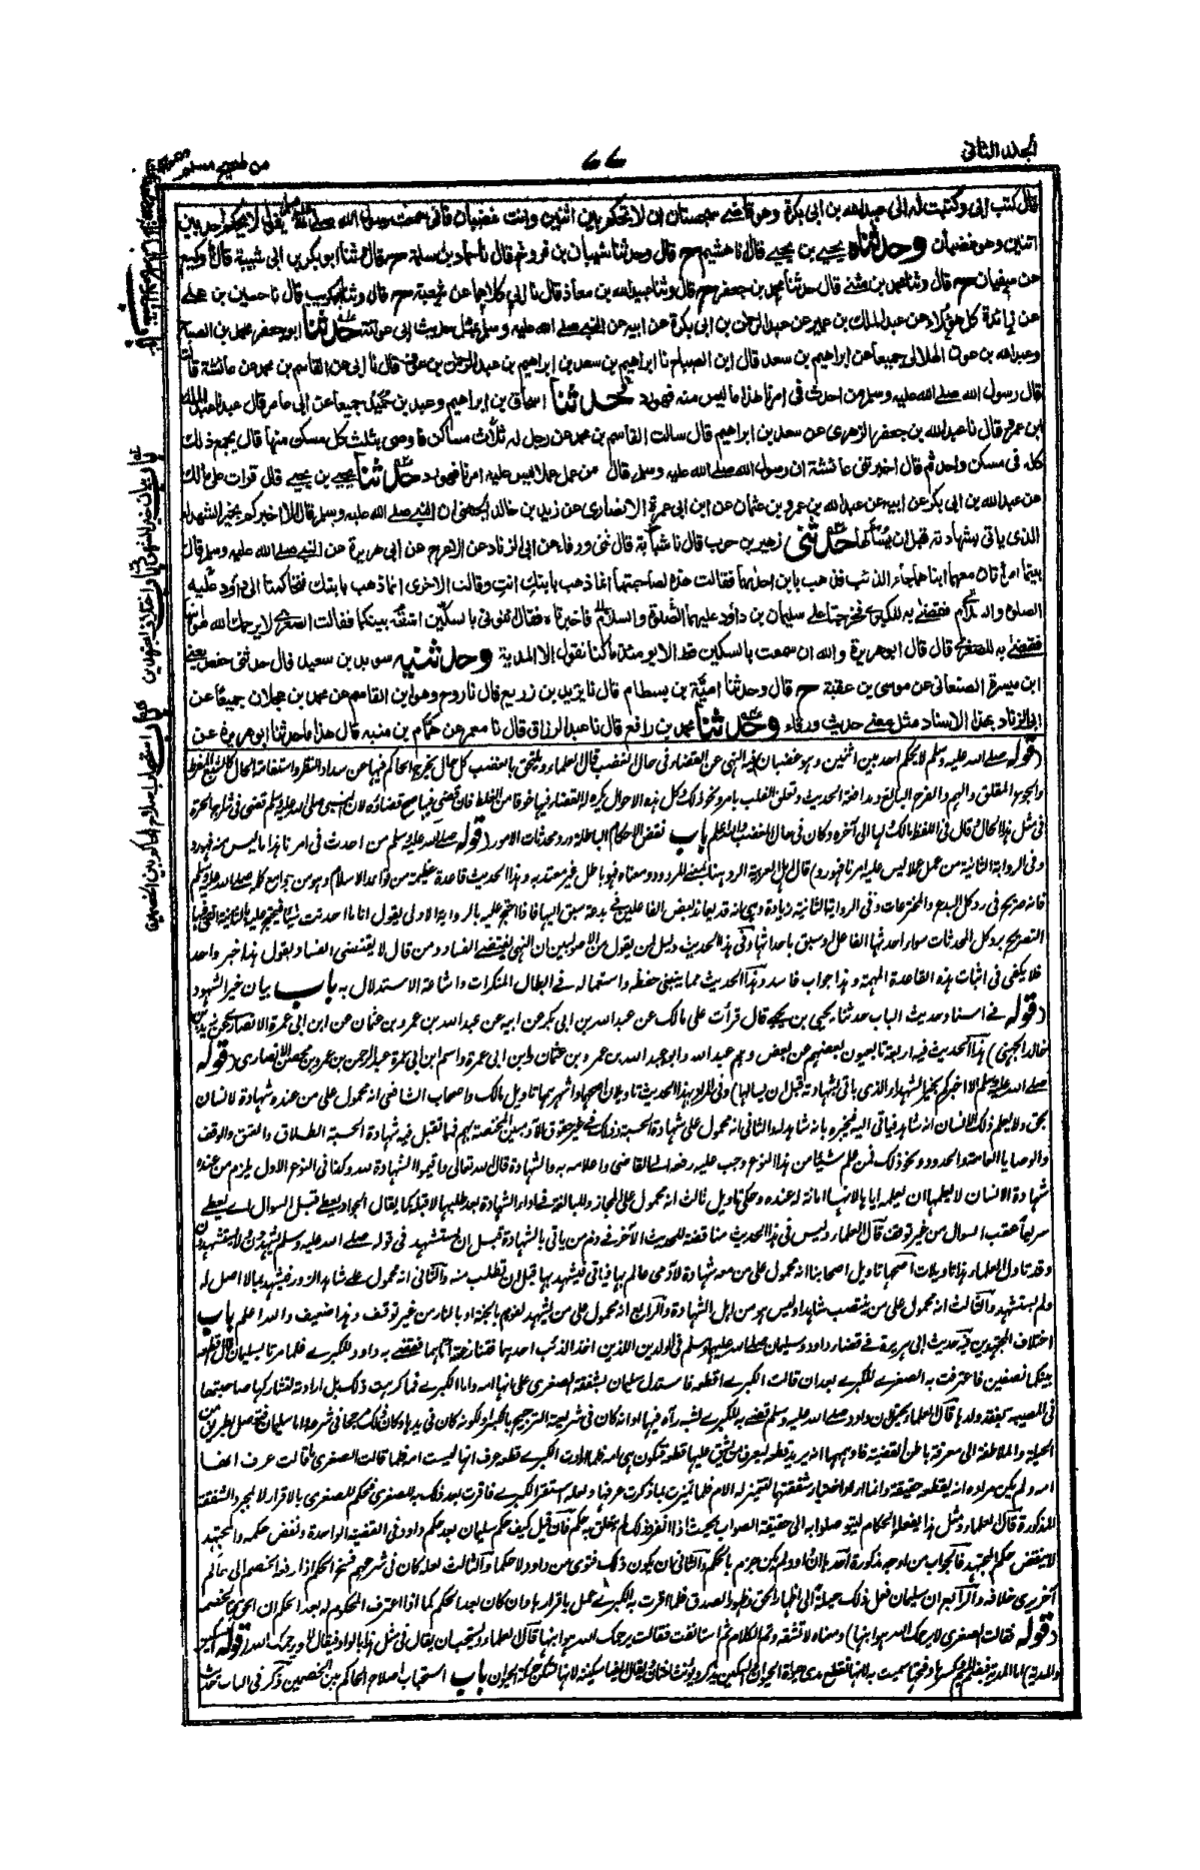 المجلد الثاني
٧٧
من صحيح مسلم
قال كتب ابي وكتبت له الى عبيد الله بن ابي بكرة وهو قاضي سجستان ان لا تحكم بين اثنين وانت غضبان فاني سمعت رسول الله صلى الله عليه وسلم يقول لا يحكم احد بين
اثنين وهو غضبان وحدثناه يحيى بن يحيى قال نا هشيم ح قال وحدثنا شيبان بن فروخ قال نا حماد بن سلمة ح قال وحدثنا ابو بكر بن ابي شيبة قال نا وكيع
عن سفيان ح قال وثنا محمد بن مثنى قال حدثنا محمد بن جعفر ح قال وثنا عبيد الله بن معاذ قال نا ابي كلاهما عن شعبة ح قال وثنا ابو كريب قال نا حسين بن علي
عن زائدة كل هؤلاء عن عبد الملك بن عمير عن عبد الرحمن بن ابي بكرة عن ابيه عن النبي صلى الله عليه وسلم بمثل حديث ابي عوانة حدثنا ابو جعفر محمد بن الصباح
وعبد الله بن عون الهلالي جميعا عن ابراهيم بن سعد قال ابن الصباح نا ابراهيم بن سعد بن ابراهيم بن عبد الرحمن بن عوف قال نا ابي عن القاسم بن محمد عن عائشة قالت
قال رسول الله صلى الله عليه وسلم من احدث في امرنا هذا ما ليس منه فهو رد وحدثنا اسحاق بن ابراهيم وعبد بن حميد جميعا عن ابي عامر قال عبد نا عبد الملك
ابن عمرو قال نا عبد الله بن جعفر الزهري عن سعد بن ابراهيم قال سالت القاسم بن محمد عن رجل له ثلاث مساكن فاوصى بثلث كل مسكن منها قال يجمع ذلك
كله في مسكن واحد ثم قال اخبرتني عائشة ان رسول الله صلى الله عليه وسلم قال من عمل عملا ليس عليه امرنا فهو رد حدثنا يحيى بن يحيى قال قرات على مالك
عن عبد الله بن ابي بكر عن ابيه عن عبد الله بن عمرو بن عثمان عن ابن ابي عمرة الانصاري عن زيد بن خالد الجهني ان النبي صلى الله عليه وسلم قال الا اخبركم بخير الشهداء
الذي ياتي بشهادته قبل ان يسألها حدثني زهير بن حرب قال نا شبابة قال ثني ورقاء عن ابي الزناد عن الاعرج عن ابي هريرة عن النبي صلى الله عليه وسلم قال
بينما امرأتان معهما ابناهما جاء الذئب فذهب بابن احداهما فقالت هذه لصاحبتها انما ذهب بابنك انت وقالت الاخرى انما ذهب بابنك فتحاكمتا الى داود عليه
الصلوة والسلام فقضى به للكبرى فخرجتا على سليمان بن داود عليهما الصلوة والسلام فاخبرتاه فقال ائتوني بالسكين اشقه بينكما فقالت الصغرى لا يرحمك الله هو ابنها
فقضى به للصغرى قال قال ابو هريرة والله ان سمعت بالسكين قط الا يومئذ ما كنا نقول الا المدية وحدثنيه سويد بن سعيد قال حدثني حفص يعني
ابن ميسرة الصنعاني عن موسى بن عقبة ح قال وحدثنا امية بن بسطام قال نا يزيد بن زريع قال نا روح وهو ابن القاسم عن محمد بن عجلان جميعا عن
ابي الزناد بهذا الاسناد مثل معنى حديث ورقاء وحدثنا محمد بن رافع قال نا عبد الرزاق قال نا معمر عن همام بن منبه قال هذا ما حدثنا ابو هريرة عن
(قوله صلى الله عليه وسلم لا يحكم احد بين اثنين وهو غضبان) فيه النهي عن القضاء في حال الغضب قال العلماء ويلتحق بالغضب كل حال يخرج الحاكم فيها عن سداد النظر واستقامة الحال كالشبع المفرط
والجوع المقلق والهم والفرح البالغ ومدافعة الحدث وتعلق القلب بامر ونحو ذلك وكل هذه الاحوال يكره له القضاء فيها خوفا من الغلط فان قضى فيها صح قضاؤه لان النبي صلى الله عليه وسلم قضى في شراج الحرة
في مثل هذا الحال وقال في اللقطة مالك ولها الى آخره وكان في حال الغضب والله اعلم باب نقض الاحكام الباطلة ورد محدثات الامور (قوله صلى الله عليه وسلم من احدث في امرنا هذا ما ليس منه فهو رد
وفي الرواية الثانية من عمل عملا ليس عليه امرنا فهو رد) قال اهل العربية الرد هنا بمعنى المردود ومعناه فهو باطل غير معتد به وهذا الحديث قاعدة عظيمة من قواعد الاسلام وهو من جوامع كلمه صلى الله عليه وسلم
فانه صريح في رد كل البدع والمخترعات وفي الرواية الثانية زيادة وهي انه قد يعاند بعض الفاعلين في بدعة سبق اليها فاذا احتج عليه بالرواية الاولى يقول انا ما احدثت شيئا فيحتج عليه بالثانية التي فيها
التصريح برد كل المحدثات سواء احدثها الفاعل او سبق باحداثها وفي هذا الحديث دليل لمن يقول من الاصوليين ان النهي يقتضي الفساد ومن قال لا يقتضي الفساد يقول هذا خبر واحد
فلا يكفي في اثبات هذه القاعدة المهمة وهذا جواب فاسد وهذا الحديث مما ينبغي حفظه واستعماله في ابطال المنكرات واشاعة الاستدلال به باب بيان خير الشهود
(قوله في اسناد حديث الباب حدثنا يحيى بن يحيى قال قرأت على مالك عن عبد الله بن ابي بكر عن ابيه عن عبد الله بن عمرو بن عثمان عن ابن ابي عمرة الانصاري عن زيد بن
خالد الجهني) هذا الحديث فيه اربعة تابعيون بعضهم عن بعض وهم عبد الله وابوه وعبد الله بن عمرو بن عثمان وابن ابي عمرة واسم ابن ابي عمرة عبد الرحمن بن عمرو بن محصن الانصاري (قوله
صلى الله عليه وسلم الا اخبركم بخير الشهداء الذي ياتي بشهادته قبل ان يسالها) وفي المراد بهذا الحديث تاويلان اصحهما واشهرهما تاويل مالك واصحاب الشافعي انه محمول على من عنده شهادة لانسان
بحق ولا يعلم ذلك الانسان انه شاهد فياتي اليه فيخبره بانه شاهد له والثاني انه محمول على شهادة الحسبة وذلك في غير حقوق الآدميين المختصة بهم فما تقبل فيه شهادة الحسبة الطلاق والعتق والوقف
والوصايا العامة والحدود ونحو ذلك فمن علم شيئا من هذا النوع وجب عليه رفعه الى القاضي واعلامه به والشهادة قال الله تعالى واقيموا الشهادة لله وكذا في النوع الاول يلزم من عنده
شهادة الانسان لا يعلمها ان يعلمه اياها لانها امانة له عنده وحكي تاويل ثالث انه محمول على المجاز والمبالغة في اداء الشهادة بعد طلبها لا قبله كما يقال الجواد يعطي قبل السوال اي يعطي
سريعا عقب السوال من غير توقف قال العلماء وليس في هذا الحديث مناقضة للحديث الآخر في ذم من ياتي بالشهادة قبل ان يستشهد في قوله صلى الله عليه وسلم يشهدون ولا يستشهدون
وقد تاول العلماء هذا تاويلات اصحها تاويل اصحابنا انه محمول على من معه شهادة لآدمي عالم بها فياتي فيشهد بها قبل ان تطلب منه والثاني انه محمول على شاهد الزور فيشهد بما لا اصل له
ولم يستشهد والثالث انه محمول على من ينتصب شاهدا وليس هو من اهل الشهادة والرابع انه محمول على من يشهد لقوم بالجنة او بالنار من غير توقف وهذا ضعيف والله اعلم باب
اختلاف المجتهدين فيه حديث ابي هريرة في قضاء داود وسليمان صلى الله عليهما وسلم في الولدين اللذين اخذ الذئب احدهما فتنازعته اماهما فقضى به داود للكبرى فلما مرتا بسليمان قال اقطعه
بينكما نصفين فاعترفت به الصغرى للكبرى بعد ان قالت الكبرى اقطعه فاستدل سليمان بشفقة الصغرى على انها امه واما الكبرى فما كرهت ذلك بل ارادته لتشاركها صاحبتها
في المصيبة بفقد ولدها قال العلماء يحتمل ان داود صلى الله عليه وسلم قضى به للكبرى لشبه رآه فيها او انه كان في شريعته الترجيح بالكبر او لكونه كان في يدها وكان ذلك مرجحا في شرعه واما سليمان فتوصل بطريق من
الحيلة والملاطفة الى معرفة باطن القضية فاوهمهما انه يريد قطعه ليعرف من يشق عليها قطعه فتكون هي امه فلما ارادت الكبرى قطعه عرف انها ليست امه فلما قالت الصغرى ما قالت عرف انها
امه ولم يكن مراده انه يقطعه حقيقة وانما اراد اختبار شفقتهما لتتميز له الام فلما تميزت بما ذكرت عرفها ولعله استقر الكبرى فاقرت بعد ذلك به للصغرى فحكم للصغرى بالاقرار لا بمجرد الشفقة
المذكورة قال العلماء ومثل هذا يفعله الحكام ليتوصلوا به الى حقيقة الصواب بحيث اذا انفرد ذلك لم يتعلق به حكم فان قيل كيف حكم سليمان بعد حكم داود في القضية الواحدة ونقض حكمه والمجتهد
لا ينقض حكم المجتهد فالجواب من اوجه مذكورة احدها ان داود لم يكن جزم بالحكم والثاني ان يكون ذلك فتوى من داود لا حكما والثالث لعله كان في شرعهم فسخ الحكم اذا رفعه الخصم الى حاكم
آخر يرى خلافه والرابع ان سليمان فعل ذلك حيلة الى اظهار الحق وظهور الصدق فلما اقرت به الكبرى عمل باقرارها وان كان بعد الحكم كما اذا اعترف المحكوم له بعد الحكم ان الحق لخصمه
(قوله فقالت الصغرى لا يرحمك الله هو ابنها) ومعناه لا تشقه وتم الكلام ثم استانفت فقالت يرحمك الله هو ابنها قال العلماء ويستحب ان يقال في مثل هذا بالواو فيقال لا ويرحمك الله (قوله السكين
والمدية) اما المدية بضم الميم وكسرها وفتحها سميت به لانها تقطع مدى حياة الحيوان والسكين يذكر ويؤنث لغتان ويقال ايضا سكينة لانها تسكن حركة الحيوان باب استحباب اصلاح الحاكم بين الخصمين ذكر في الباب حديث
باب بيان خير الشهود
باب اختلاف المجتهدين
باب استحباب اصلاح الحاكم بين الخصمين